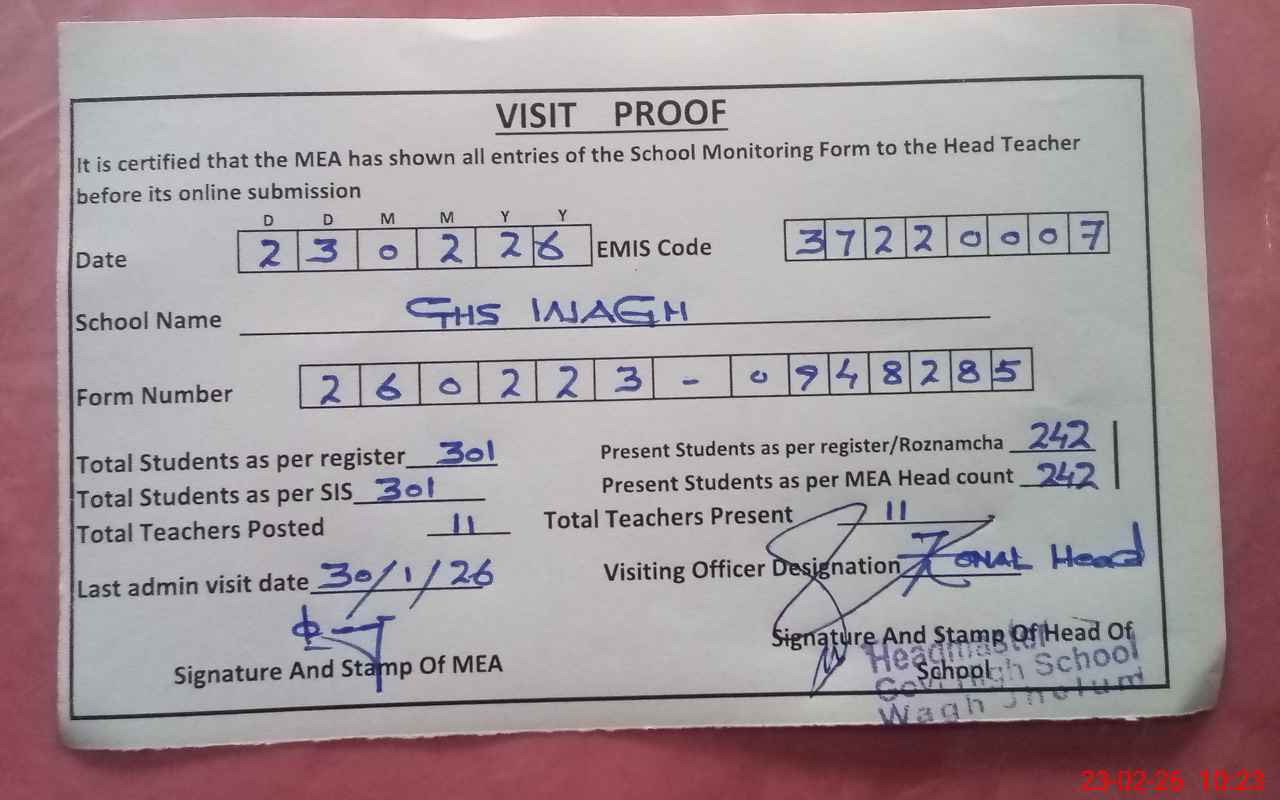 VISIT PROOF
It is certified that the MEA has shown all entries of the School Monitoring Form to the Head Teacher
before its online submission
D D M M Y Y
Date 2 3 0 2 2 6 EMIS Code 3 7 2 2 0 0 0 7
School Name GHS WAGH
Form Number 2 6 0 2 2 3 - 0 9 4 8 2 8 5
Total Students as per register 301 Present Students as per register/Roznamcha 242
Total Students as per SIS 301 Present Students as per MEA Head count 242
Total Teachers Posted 11 Total Teachers Present 11
Last admin visit date 30/1/26 Visiting Officer Designation Zonal Head
Signature And Stamp Of MEA Signature And Stamp Of Head Of
School
Headmaster
Govt High School
Wagh Jhelum
23-02-26 10:23